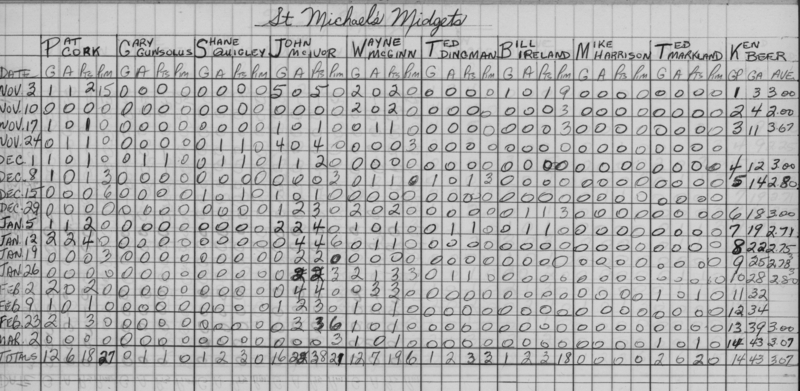 St Michaels Midgets
PAT CORK GARY GUNSOLUS SHANE QUIGLEY JOHN McIVOR WAYNE McGINN TED DINGMAN BILL IRELAND MIKE HARRISON TED MARKLAND KEN BEER
DATE G A Pts Pim G A Pts Pim G A Pts Pim G A Pts Pim G A Pts Pim G A Pts Pim G A Pts Pim G A Pts Pim G A Pts Pim GP GA AVE.
NOV. 3 1 1 2 15 0 0 0 0 0 0 0 0 5 0 5 0 2 0 2 0 0 0 0 0 1 0 1 9 0 0 0 0 0 0 0 0 1 3 3.00
NOV. 10 0 0 0 0 0 0 0 0 0 0 0 0 0 0 0 0 2 0 2 0 0 0 0 0 0 0 0 3 0 0 0 0 0 0 0 0 2 4 2.00
NOV. 17 1 0 1 0 0 0 0 0 0 0 0 0 1 0 1 0 0 1 1 0 0 0 0 0 0 0 0 3 0 0 0 0 0 0 0 0 3 11 3.67
NOV. 24 0 1 1 0 0 0 0 0 0 1 1 0 4 0 4 0 0 0 0 3 0 0 0 0 0 0 0 0 0 0 0 0 0 0 0 0
DEC. 1 1 0 1 0 0 1 1 0 0 1 1 0 1 1 2 0 0 0 0 0 0 0 0 0 0 0 0 0 0 0 0 0 0 0 0 0 4 12 3.00
DEC. 8 1 0 1 3 0 0 0 0 0 0 0 0 0 0 0 3 0 1 1 0 1 0 1 3 0 0 0 0 0 0 0 0 0 0 0 0 5 14 2.80
DEC. 15 0 0 0 6 0 0 0 0 1 0 1 0 1 0 1 0 0 0 0 0 0 0 0 0 0 0 0 0 0 0 0 0 0 0 0 0
DEC. 29 0 0 0 0 0 0 0 0 0 0 0 0 1 2 3 0 2 0 2 0 0 0 0 0 0 1 1 3 0 0 0 0 0 0 0 0 6 18 3.00
JAN. 5 1 1 2 0 0 0 0 0 0 0 0 0 2 2 4 0 1 0 1 0 0 1 1 0 0 1 1 0 0 0 0 0 0 0 0 0 7 19 2.71
JAN. 12 2 2 4 0 0 0 0 0 0 0 0 0 0 4 4 6 0 1 1 0 0 0 0 0 0 0 0 0 0 0 0 0 0 0 0 0 8 22 2.75
JAN. 19 0 0 0 3 0 0 0 0 0 0 0 0 0 2 2 0 0 0 0 0 0 0 0 0 0 0 0 0 0 0 0 0 0 0 0 0 9 25 2.78
JAN. 26 0 0 0 0 0 0 0 0 0 0 0 0 0 2 2 3 2 1 3 3 0 1 1 0 0 0 0 0 0 0 0 0 0 0 0 0 10 28 2.80
FEB 2 2 0 2 0 0 0 0 0 0 0 0 0 0 4 4 0 0 3 3 0 0 0 0 0 0 0 0 0 0 0 0 0 1 0 1 0 11 32
FEB 9 1 0 1 0 0 0 0 0 0 0 0 0 1 2 3 0 1 0 1 0 0 0 0 0 0 0 0 0 0 0 0 0 0 0 0 0 12 34
FEB. 23 2 1 3 0 0 0 0 0 0 0 0 0 0 3 3 6 0 0 0 0 0 0 0 0 0 0 0 0 0 0 0 0 0 0 0 0 13 39 3.00
MAR. 2 0 0 0 0 0 0 0 0 0 0 0 0 0 0 0 3 1 0 1 0 0 0 0 0 0 0 0 0 0 0 0 0 1 0 1 0 14 43 3.07
TOTALS 12 6 18 27 0 1 1 0 1 2 3 0 16 22 38 21 12 7 19 6 1 2 3 3 1 2 3 18 0 0 0 0 2 0 2 0 14 43 3.07